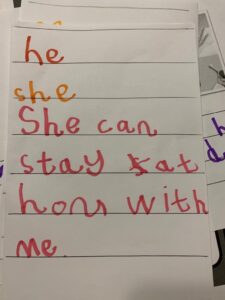 he
she
She can
stay at
hous with
me.
h
d